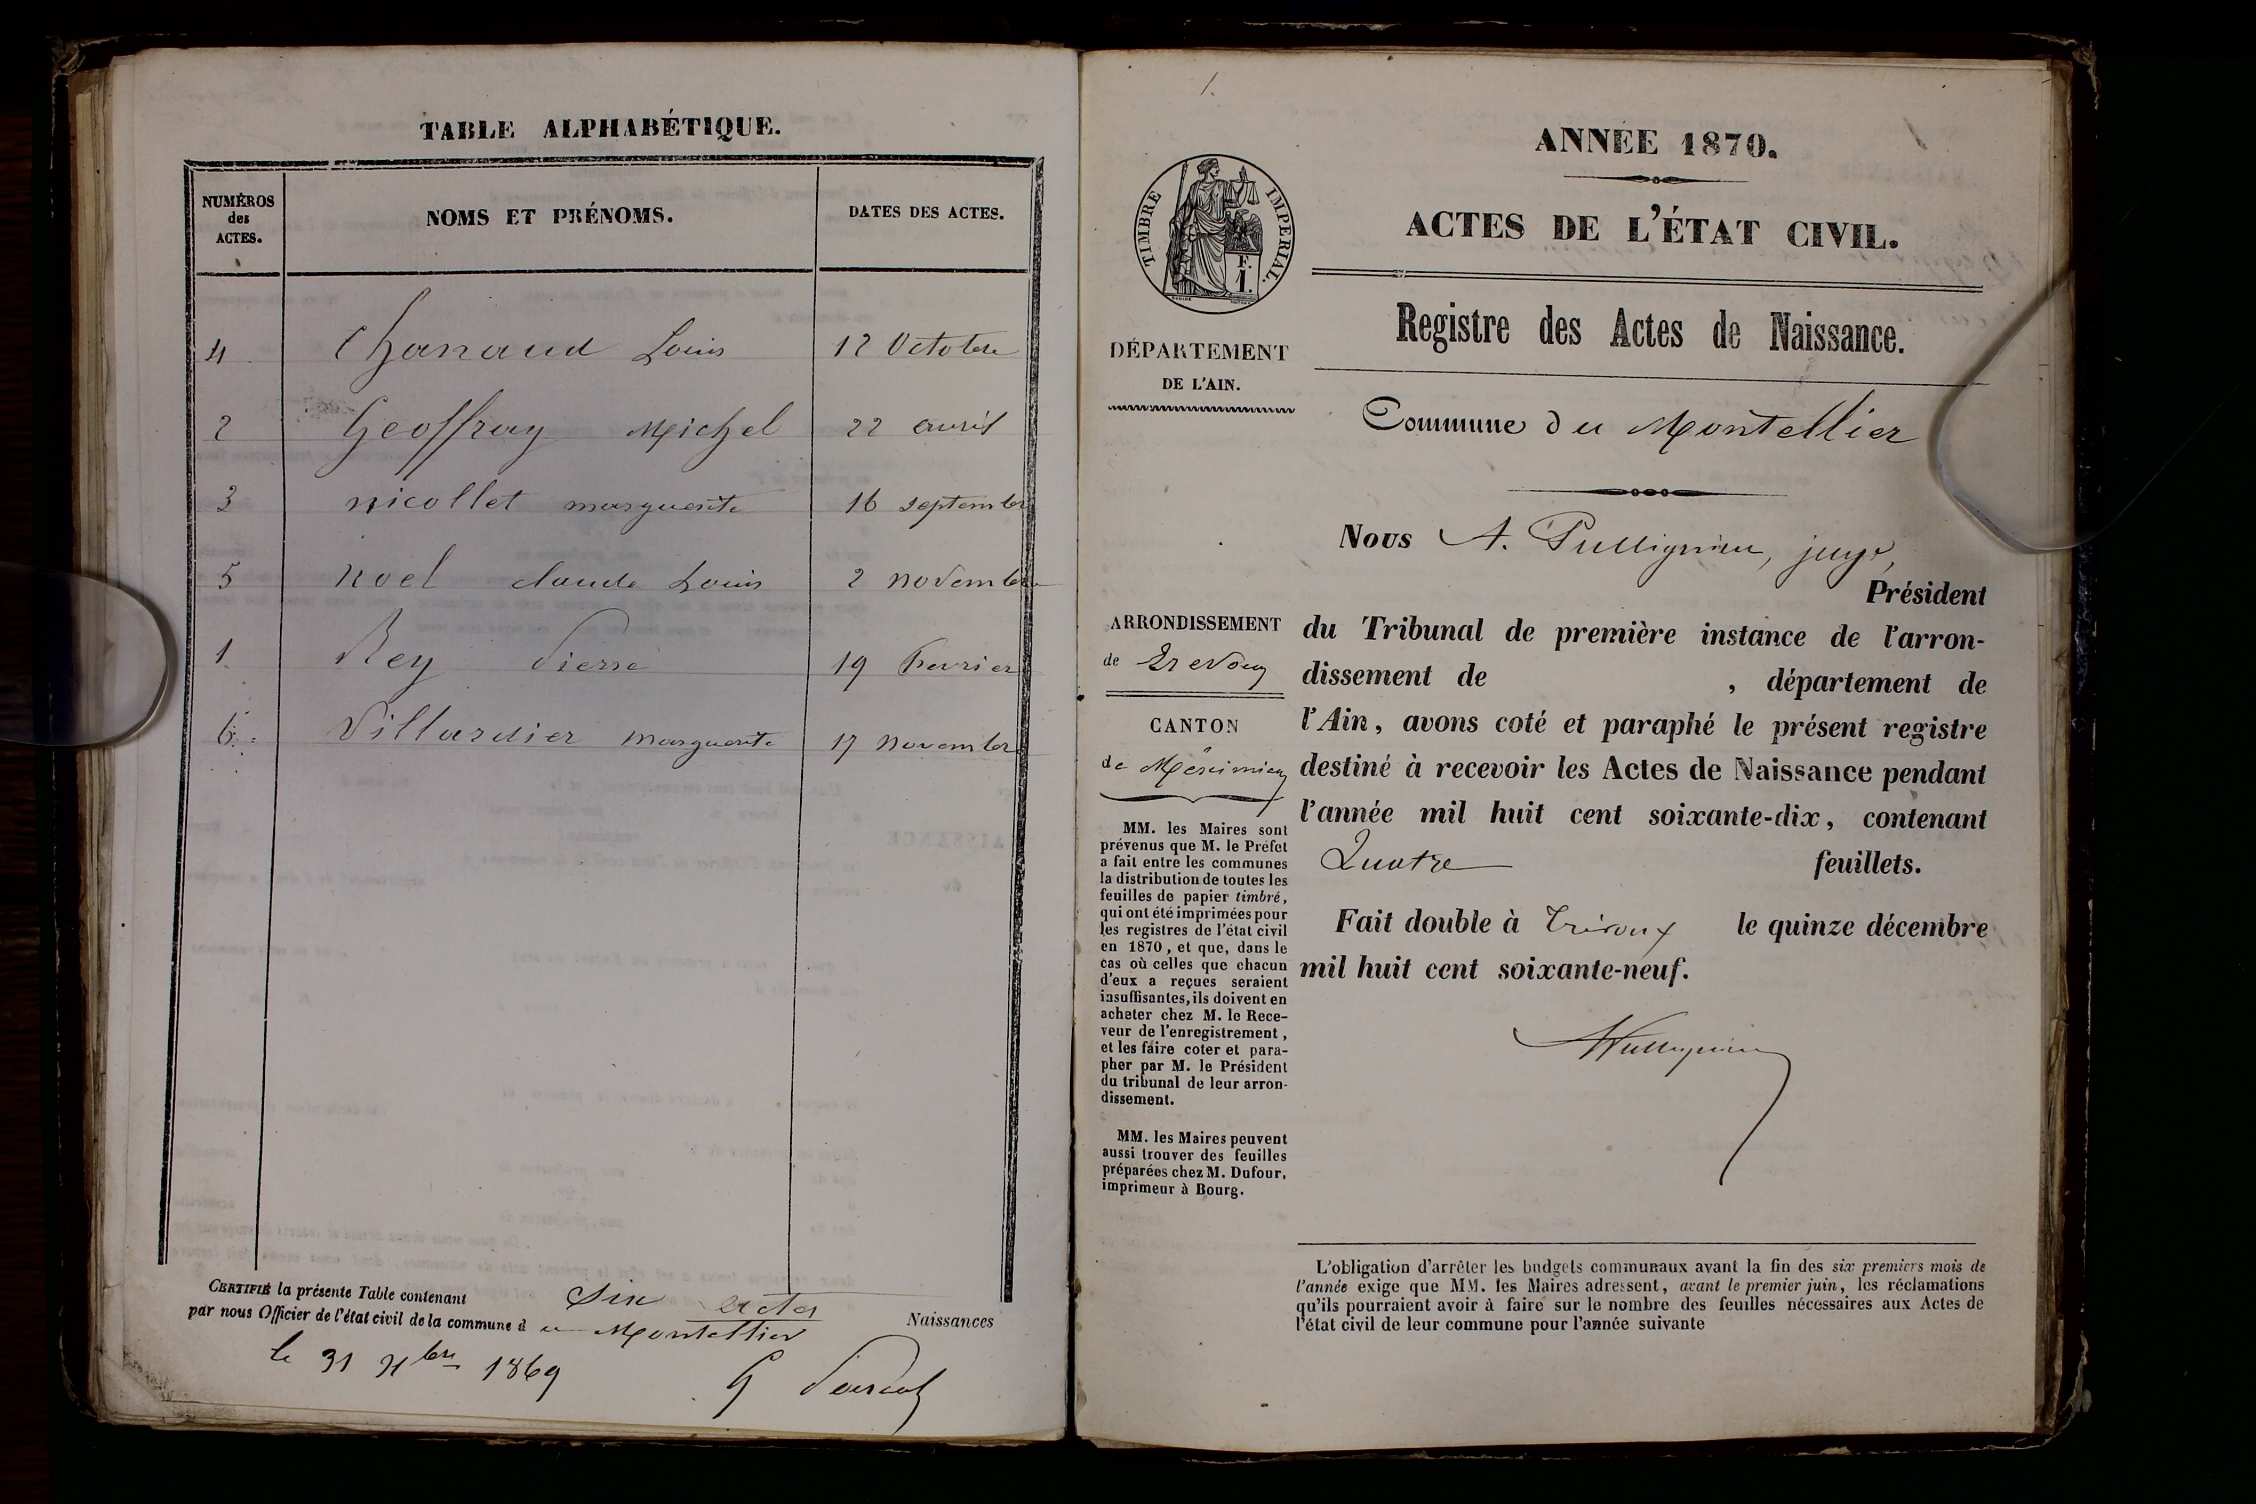 TABLE ALPHABÉTIQUE.
NUMÉROS
des
ACTES.
NOMS ET PRÉNOMS.
DATES DES ACTES.
4 Chanaud Louis 12 Octobre
2 Geoffray Michel 22 avril
3 nicollet marguerite 16 septembre
5 Noel claude Louis 2 novembre
1 Rey Pierre 19 Fevrier
6 Villardier marguerite 17 novembre
CERTIFIÉ la présente Table contenant Six actes
par nous Officier de l'état civil de la commune d u Montellier Naissances
le 31 Xbre 1869
1.
ANNÉE 1870.
ACTES DE L'ÉTAT CIVIL.
Registre des Actes de Naissance.
TIMBRE IMPERIAL.
F.
1.
DÉPARTEMENT
DE L'AIN.
Commune du Montellier
Nous A. Pullignieu, juge,
Président
du Tribunal de première instance de l'arron-
dissement de , département de
l'Ain, avons coté et paraphé le présent registre
destiné à recevoir les Actes de Naissance pendant
l'année mil huit cent soixante-dix, contenant
Quatre feuillets.
Fait double à Trévoux le quinze décembre
mil huit cent soixante-neuf.
ARRONDISSEMENT
de Trevoux
CANTON
de Méximieux
MM. les Maires sont
prévenus que M. le Préfet
a fait entre les communes
la distribution de toutes les
feuilles de papier timbré,
qui ont été imprimées pour
les registres de l'état civil
en 1870, et que, dans le
cas où celles que chacun
d'eux a reçues seraient
insuffisantes, ils doivent en
acheter chez M. le Rece-
veur de l'enregistrement,
et les faire coter et para-
pher par M. le Président
du tribunal de leur arron-
dissement.
MM. les Maires peuvent
aussi trouver des feuilles
préparées chez M. Dufour,
imprimeur à Bourg.
L'obligation d'arrêter les budgets communaux avant la fin des six premiers mois de
l'année exige que MM. les Maires adressent, avant le premier juin, les réclamations
qu'ils pourraient avoir à faire sur le nombre des feuilles nécessaires aux Actes de
l'état civil de leur commune pour l'année suivante